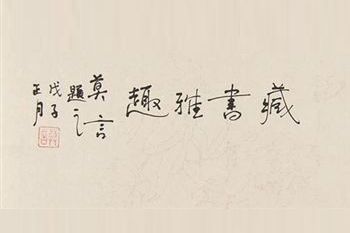 藏書雅趣
莫言
題之
戊子
正月